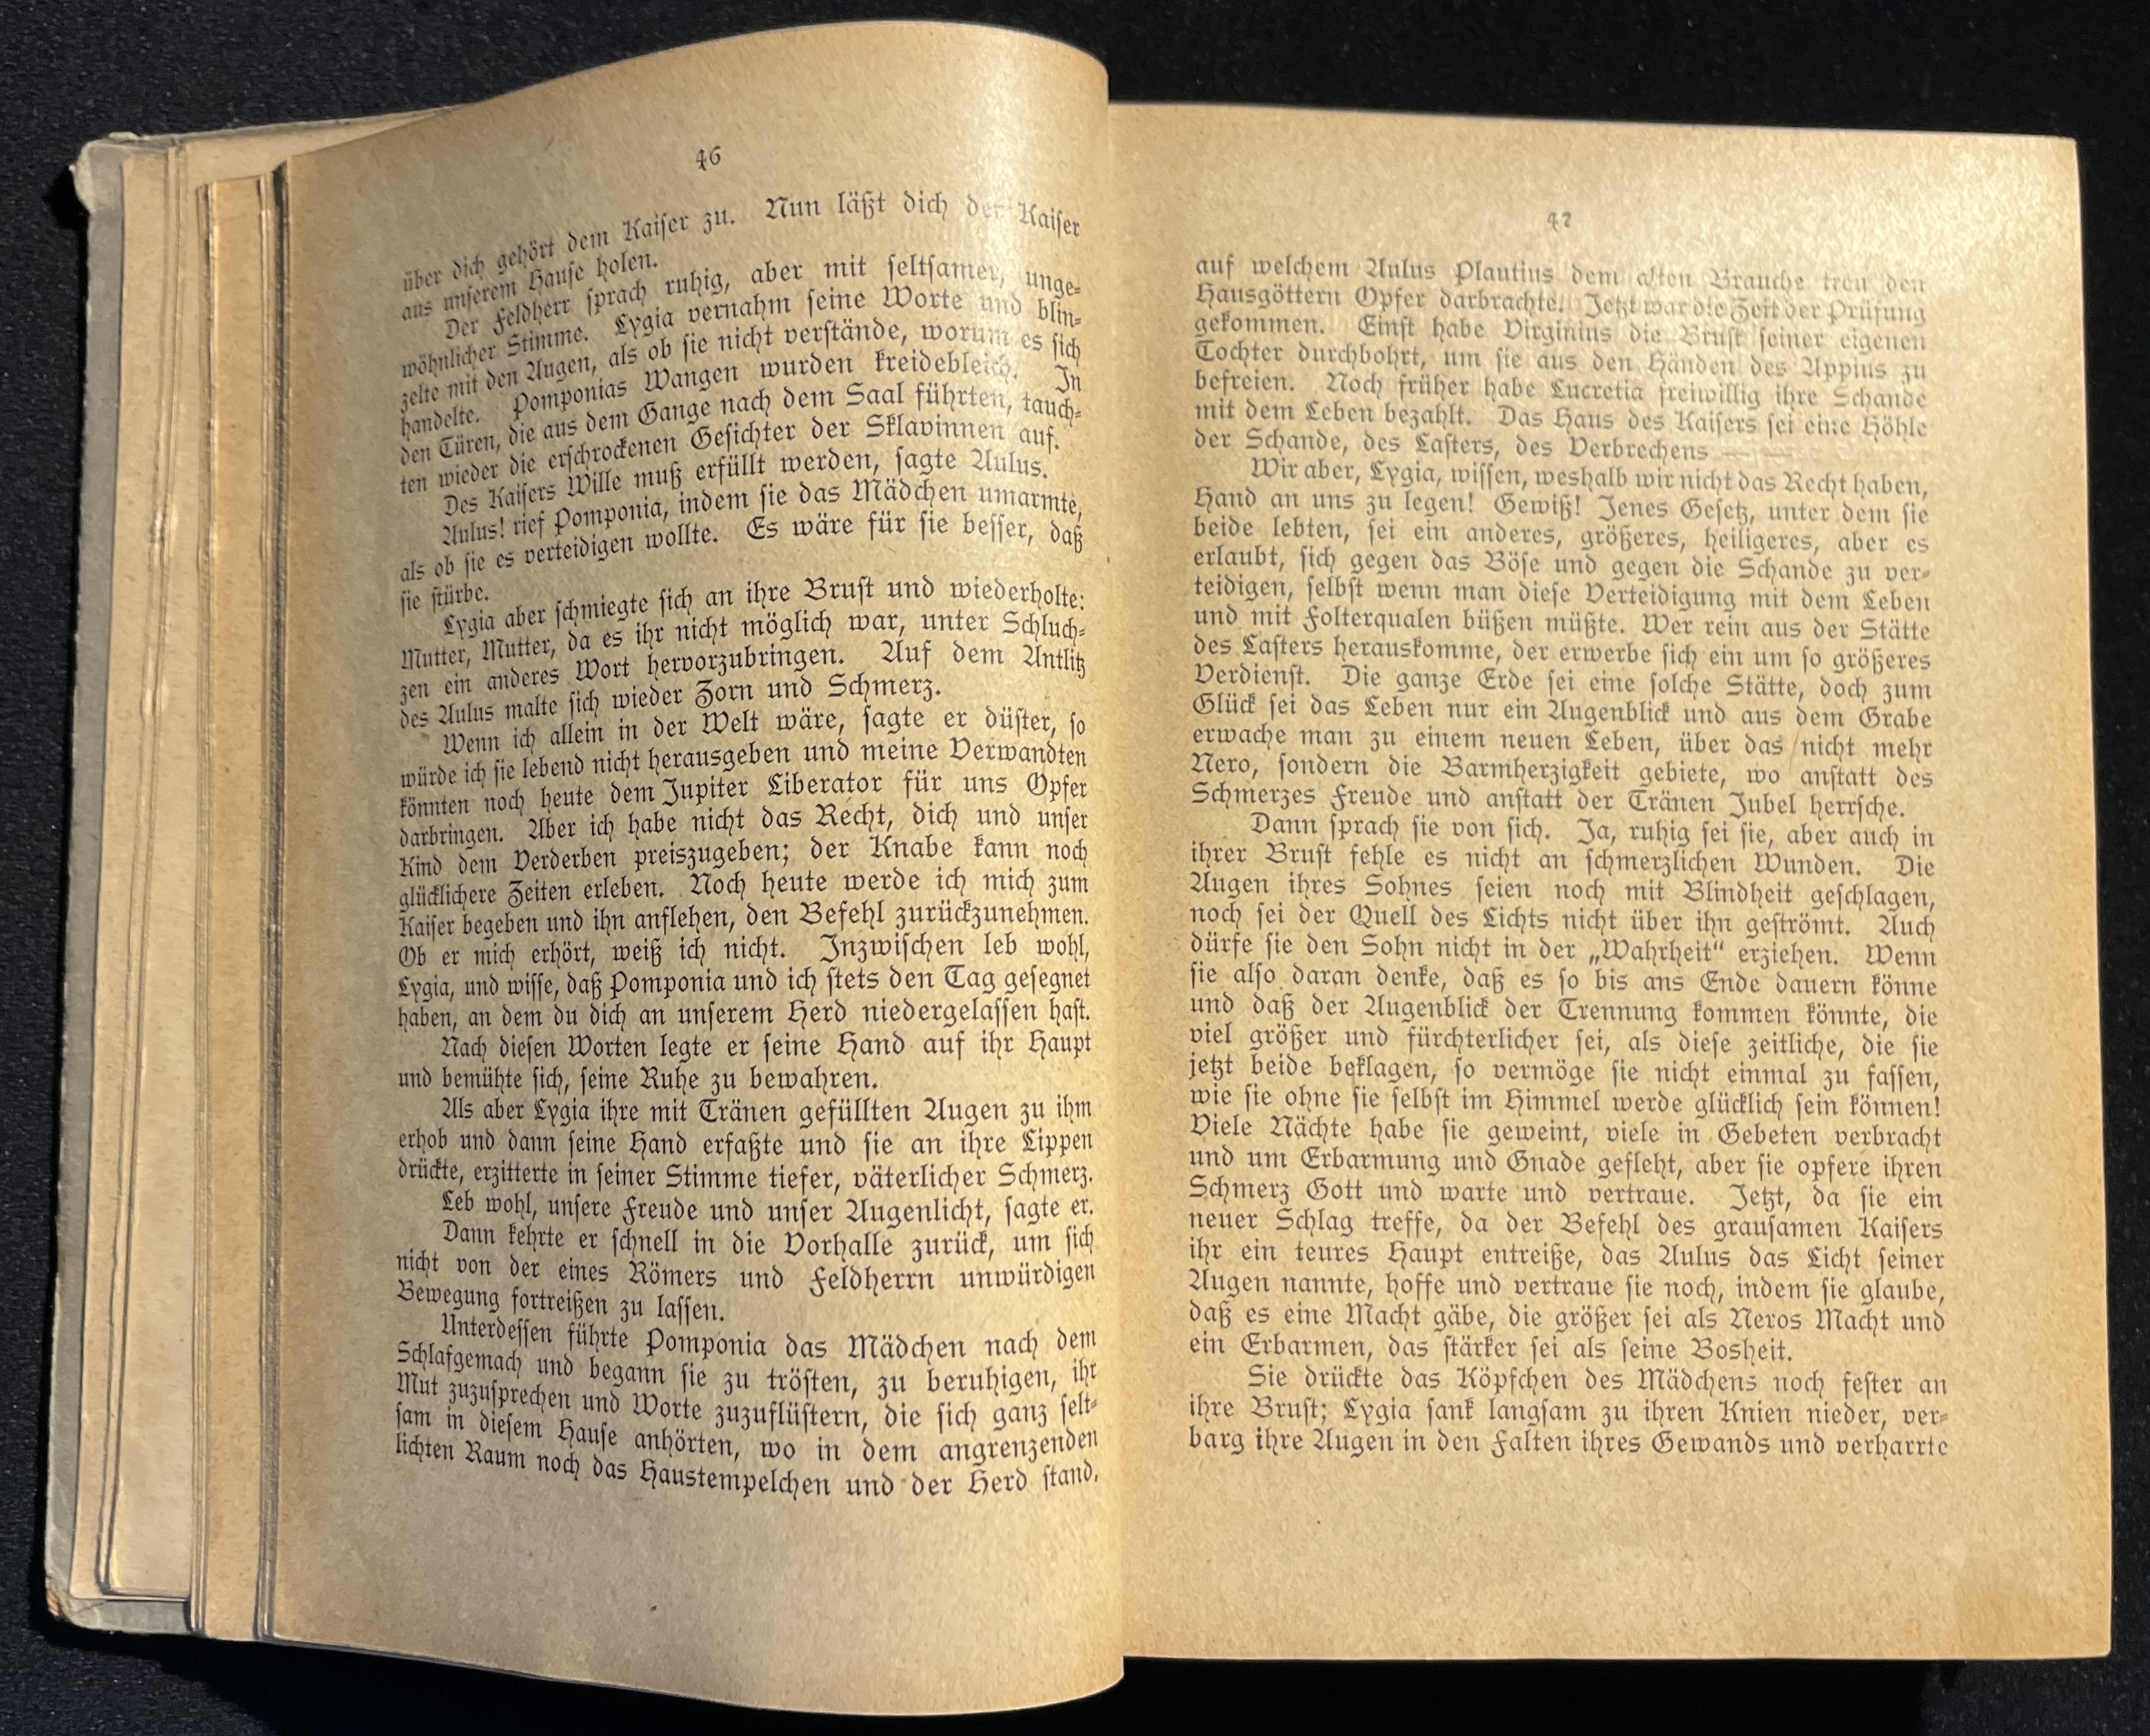 46
über dich gehört dem Kaiser zu. Nun läßt dich der Kaiser
aus unserem Hause holen.
Der Feldherr sprach ruhig, aber mit seltsamer, unge-
wöhnlicher Stimme. Lygia vernahm seine Worte und blin-
zelte mit den Augen, als ob sie nicht verstände, worum es sich
handelte. Pomponias Wangen wurden kreidebleich. In
den Türen, die aus dem Gange nach dem Saal führten, tauch-
ten wieder die erschrockenen Gesichter der Sklavinnen auf.
Des Kaisers Wille muß erfüllt werden, sagte Aulus.
Aulus! rief Pomponia, indem sie das Mädchen umarmte,
als ob sie es verteidigen wollte. Es wäre für sie besser, daß
sie stürbe.
Lygia aber schmiegte sich an ihre Brust und wiederholte:
Mutter, Mutter, da es ihr nicht möglich war, unter Schluch-
zen ein anderes Wort hervorzubringen. Auf dem Antlitz
des Aulus malte sich wieder Zorn und Schmerz.
Wenn ich allein in der Welt wäre, sagte er düster, so
würde ich sie lebend nicht herausgeben und meine Verwandten
könnten noch heute dem Jupiter Liberator für uns Opfer
darbringen. Aber ich habe nicht das Recht, dich und unser
Kind dem Verderben preiszugeben; der Knabe kann noch
glücklichere Zeiten erleben. Noch heute werde ich mich zum
Kaiser begeben und ihn anflehen, den Befehl zurückzunehmen.
Ob er mich erhört, weiß ich nicht. Inzwischen leb wohl,
Lygia, und wisse, daß Pomponia und ich stets den Tag gesegnet
haben, an dem du dich an unserem Herd niedergelassen hast.
Nach diesen Worten legte er seine Hand auf ihr Haupt
und bemühte sich, seine Ruhe zu bewahren.
Als aber Lygia ihre mit Tränen gefüllten Augen zu ihm
erhob und dann seine Hand erfaßte und sie an ihre Lippen
drückte, erzitterte in seiner Stimme tiefer, väterlicher Schmerz.
Leb wohl, unsere Freude und unser Augenlicht, sagte er.
Dann kehrte er schnell in die Vorhalle zurück, um sich
nicht von der eines Römers und Feldherrn unwürdigen
Bewegung fortreißen zu lassen.
Unterdessen führte Pomponia das Mädchen nach dem
Schlafgemach und begann sie zu trösten, zu beruhigen, ihr
Mut zuzusprechen und Worte zuzuflüstern, die sich ganz selt-
sam in diesem Hause anhörten, wo in dem angrenzenden
lichten Raum noch das Haustempelchen und der Herd stand,
47
auf welchem Aulus Plautius dem alten Brauche treu den
Hausgöttern Opfer darbrachte. Jetzt war die Zeit der Prüfung
gekommen. Einst habe Virginius die Brust seiner eigenen
Tochter durchbohrt, um sie aus den Händen des Appius zu
befreien. Noch früher habe Lucretia freiwillig ihre Schande
mit dem Leben bezahlt. Das Haus des Kaisers sei eine Höhle
der Schande, des Lasters, des Verbrechens — —
Wir aber, Lygia, wissen, weshalb wir nicht das Recht haben,
Hand an uns zu legen! Gewiß! Jenes Gesetz, unter dem sie
beide lebten, sei ein anderes, größeres, heiligeres, aber es
erlaubt, sich gegen das Böse und gegen die Schande zu ver-
teidigen, selbst wenn man diese Verteidigung mit dem Leben
und mit Folterqualen büßen müßte. Wer rein aus der Stätte
des Lasters herauskomme, der erwerbe sich ein um so größeres
Verdienst. Die ganze Erde sei eine solche Stätte, doch zum
Glück sei das Leben nur ein Augenblick und aus dem Grabe
erwache man zu einem neuen Leben, über das nicht mehr
Nero, sondern die Barmherzigkeit gebiete, wo anstatt des
Schmerzes Freude und anstatt der Tränen Jubel herrsche.
Dann sprach sie von sich. Ja, ruhig sei sie, aber auch in
ihrer Brust fehle es nicht an schmerzlichen Wunden. Die
Augen ihres Sohnes seien noch mit Blindheit geschlagen,
noch sei der Quell des Lichts nicht über ihn geströmt. Auch
dürfe sie den Sohn nicht in der „Wahrheit“ erziehen. Wenn
sie also daran denke, daß es so bis ans Ende dauern könne
und daß der Augenblick der Trennung kommen könnte, die
viel größer und fürchterlicher sei, als diese zeitliche, die sie
jetzt beide beklagen, so vermöge sie nicht einmal zu fassen,
wie sie ohne sie selbst im Himmel werde glücklich sein können!
Viele Nächte habe sie geweint, viele in Gebeten verbracht
und um Erbarmung und Gnade gefleht, aber sie opfere ihren
Schmerz Gott und warte und vertraue. Jetzt, da sie ein
neuer Schlag treffe, da der Befehl des grausamen Kaisers
ihr ein teures Haupt entreiße, das Aulus das Licht seiner
Augen nannte, hoffe und vertraue sie noch, indem sie glaube,
daß es eine Macht gäbe, die größer sei als Neros Macht und
ein Erbarmen, das stärker sei als seine Bosheit.
Sie drückte das Köpfchen des Mädchens noch fester an
ihre Brust; Lygia sank langsam zu ihren Knien nieder, ver-
barg ihre Augen in den Falten ihres Gewands und verharrte